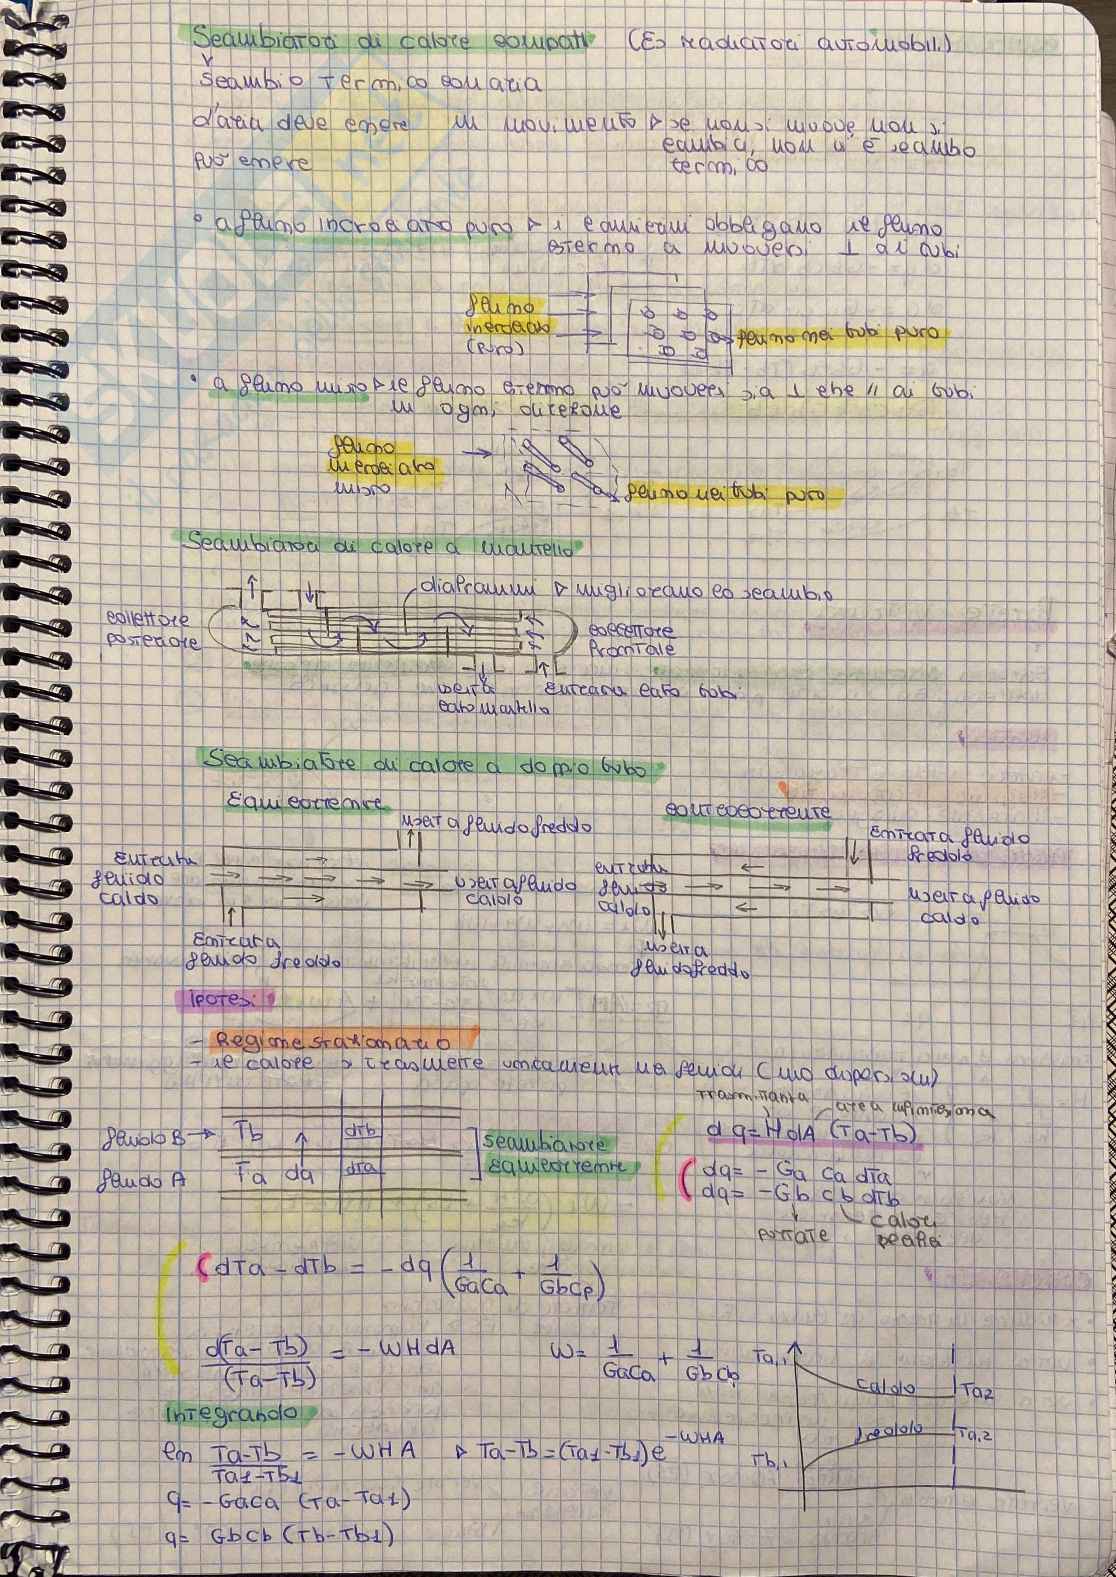 Scambiatori di calore compatti (Es radiatori automobili)
Scambio termico con aria
L'aria deve essere in movimento ▷ se non si muove non si
cambia, non c'è scambio
può essere
termico
• a flusso incrociato puro ▷ i convogli obbligano il fluido
esterno a muoversi ⊥ ai tubi
flusso
incrociato
(puro)
flusso nei tubi puro
• a flusso misto ▷ il flusso esterno può muoversi sia ⊥ che // ai tubi
in ogni direzione
flusso
incrociato
misto
flusso nei tubi puro
Scambiatori di calore a mantello
diaframmi ▷ migliorano lo scambio
collettore
posteriore
collettore
frontale
uscita
lato mantello
entrata lato tubi
Scambiatore di calore a doppio tubo
Equicorrente
controcorrente
uscita fluido freddo
Entrata fluido
freddo
entrata
fluido
caldo
uscita fluido
caldo
entrata
fluido
caldo
uscita fluido
caldo
Entrata
fluido freddo
uscita
fluido freddo
Ipotesi
- Regime stazionario
- il calore si trasmette unicamente nei fluidi (no dispersioni)
trasmittanza area infinitesima
dq = H dA (Ta-Tb)
fluido B → Tb dTb
fluido A Ta dq dTa
scambiatore
equicorrente
dq = - Ga ca dTa
dq = - Gb cb dTb
portate
calori
specifici
dTa - dTb = - dq (1/GaCa + 1/GbCp)
d(Ta-Tb)/(Ta-Tb) = - WHdA W = 1/GaCa + 1/GbCb
Ta,1
caldo
Ta2
freddo
Ta,2
Tb,1
Integrando
ln Ta-Tb/Ta1-Tb1 = - WHA ▷ Ta-Tb = (Ta1-Tb1)e^-WHA
q = - GaCa (Ta-Ta1)
q = GbCb (Tb-Tb1)